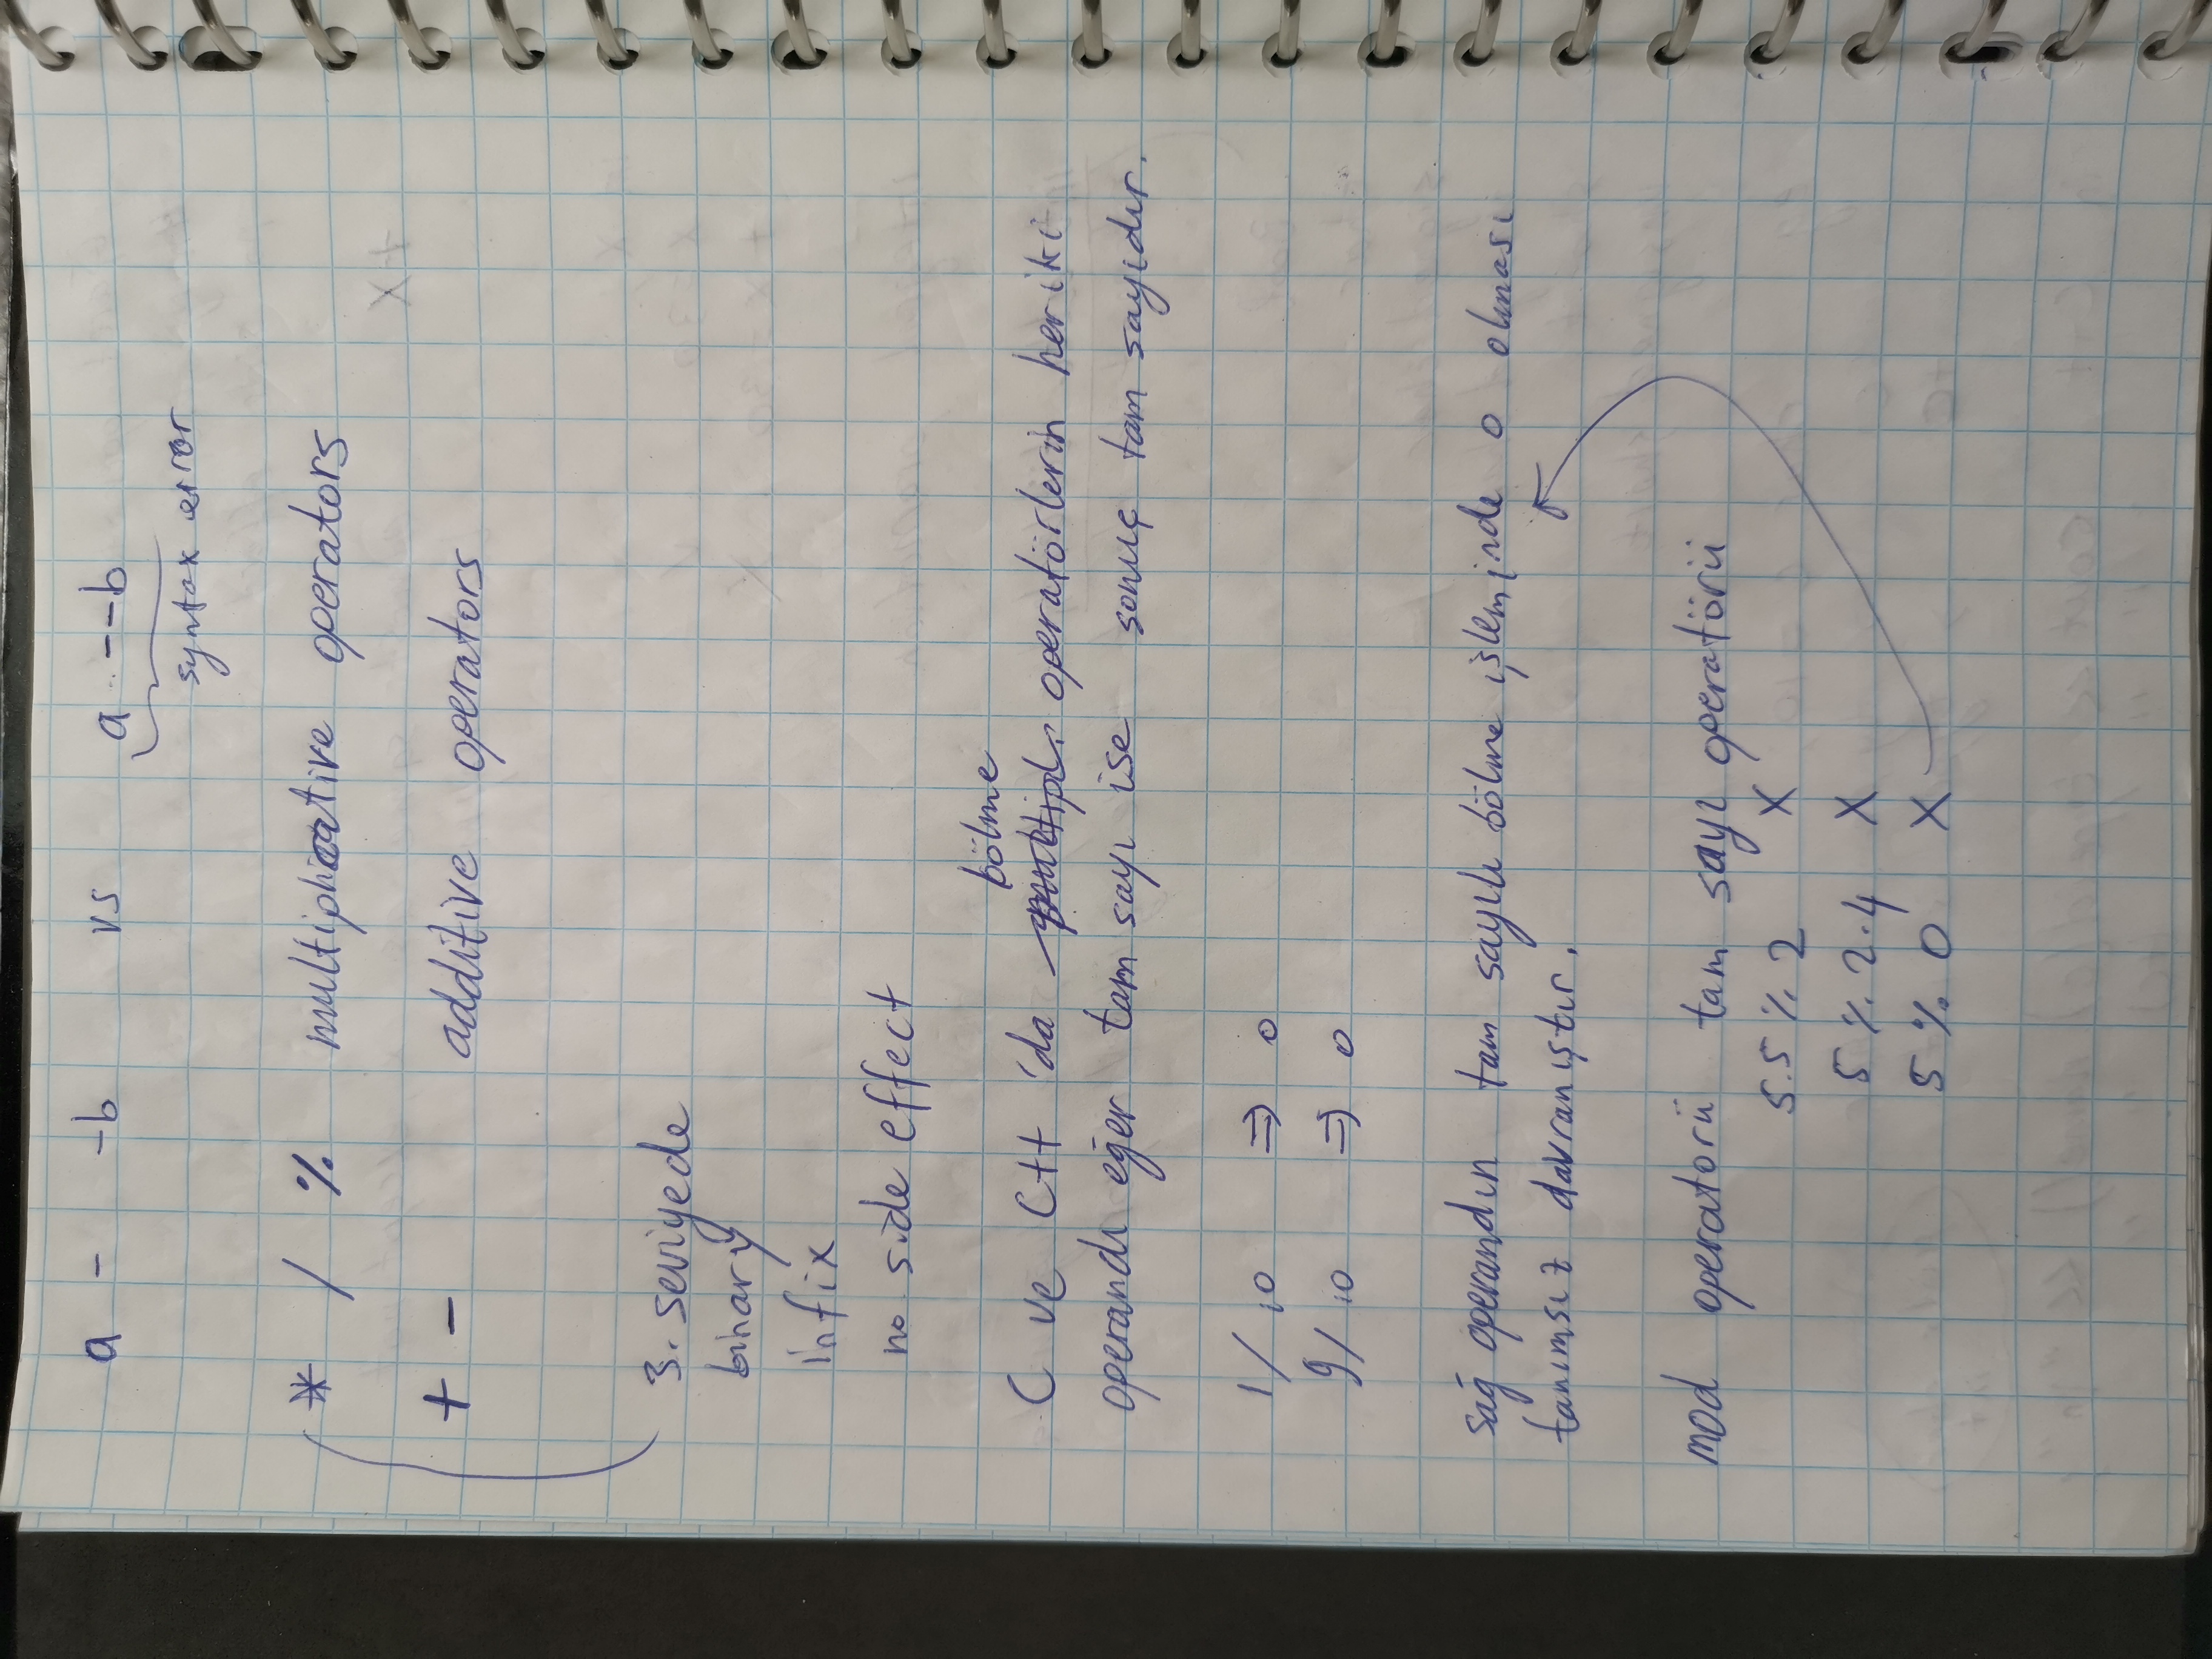 a - -b vs a --b
syntax error
* / % multiplicative operators
+ - additive operators
3. seviyede
binary
infix
no side effect
bölme
C ve C++ 'da operatörlerin heriki
operandı eğer tam sayı ise sonuç tam sayıdır.
1/10 => 0
9/10 => 0
Sağ operandın tam sayılı bölme işleminde 0 olması
tanımsız davranıştır.
mod operatorü tam sayı operatörü
5.5 % 2 X
5 % 2.4 X
5 % 0 X